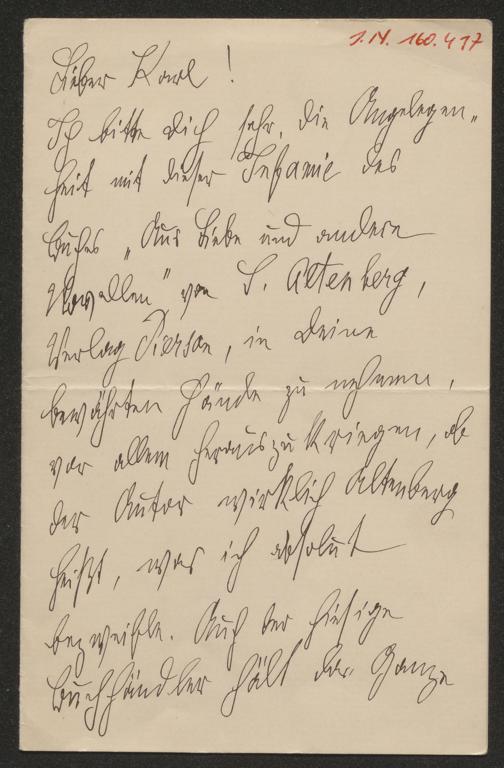 J.N. 160.417
Lieber Karl!
Ich bitte Dich sehr, die Angelegen„
heit mit dieser Infamie des
Buches „Aus Liebe und andere
Novellen“ von S. Altenberg,
Verlag Pierson, in Deine
bewährten Hände zu nehmen,
vor allem herauszukriegen, ob
der Autor wirklich Altenberg
heißt, was ich absolut
bezweifle. Auch der hiesige
Buchhändler hält das Ganze